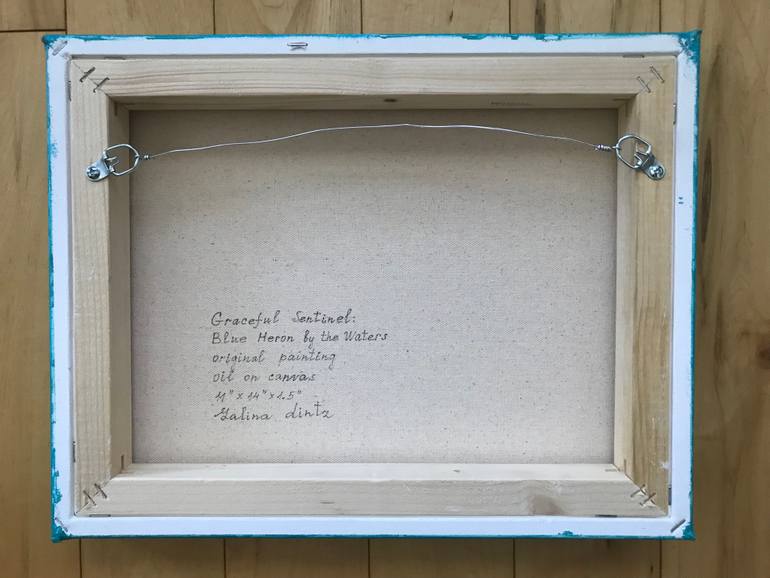 Graceful Sentinel:
Blue Heron by the Waters
original painting
oil on canvas
11" x 14" x 1.5"
Galina dintz